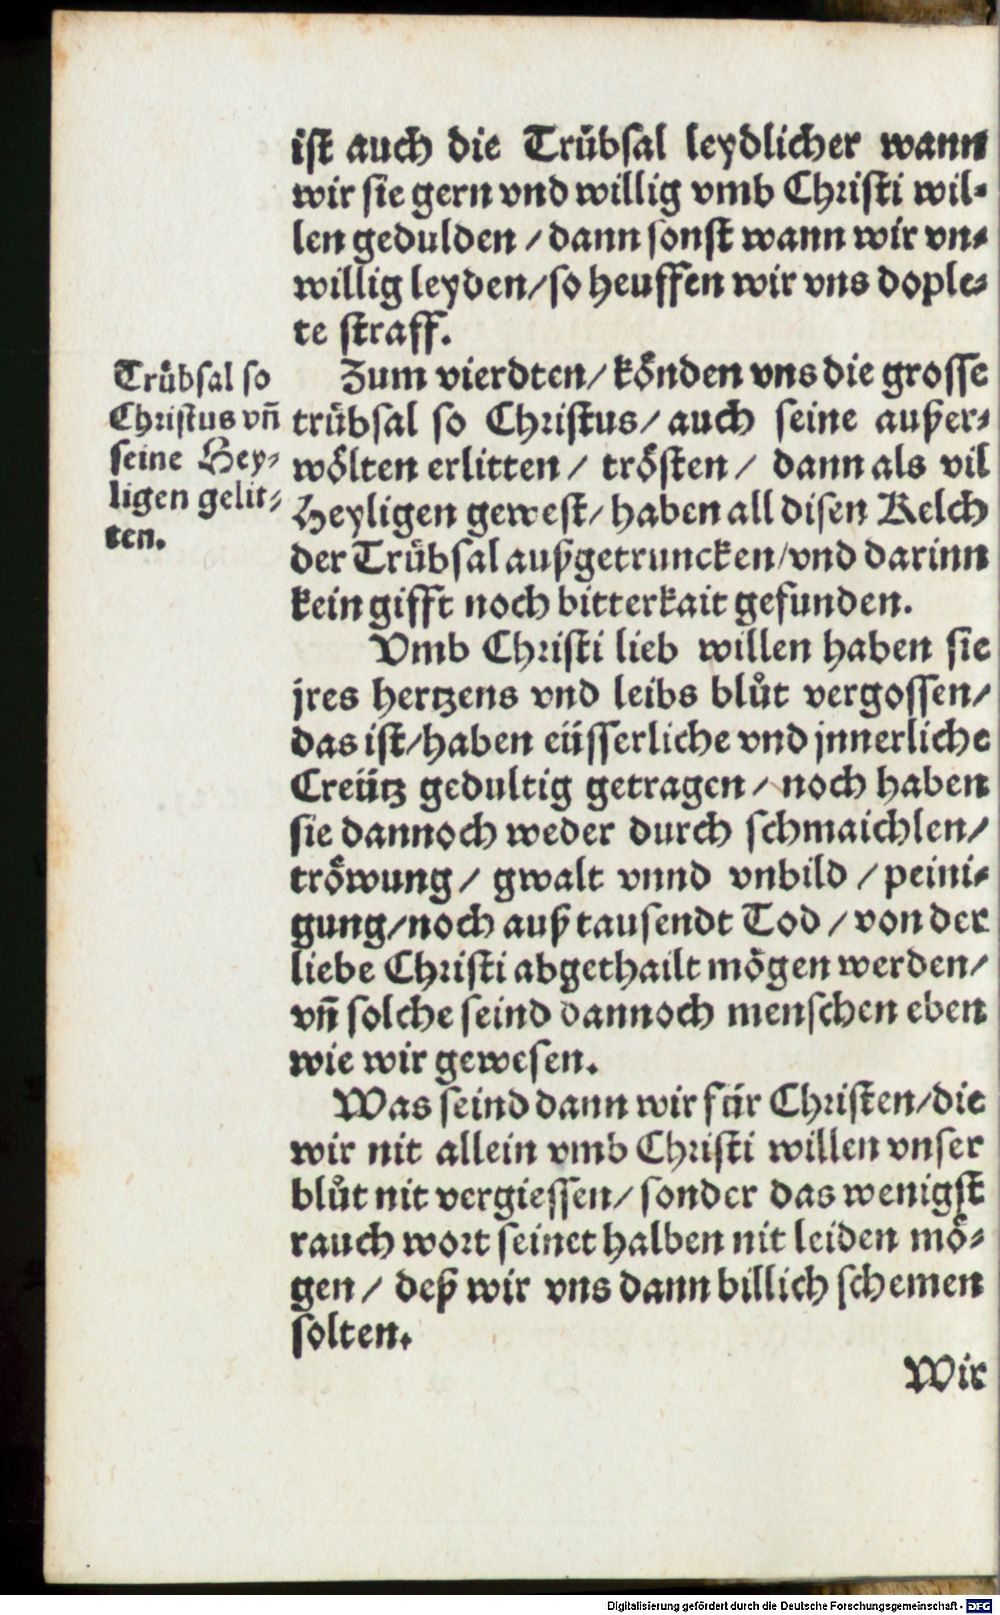 ist auch die Trübsal leydlicher wann
wir sie gern vnd willig vmb Christi wil-
len gedulden / dann sonst wann wir vn-
willig leyden / so heuffen wir vns dople-
te straff.
Trübsal so
Christus vñ
seine Hey-
ligen gelit-
ten.
Zum vierdten / könden vns die grosse
trübsal so Christus / auch seine außer-
wölten erlitten / trösten / dann als vil
Heyligen gewest / haben all disen Kelch
der Trübsal außgetruncken / vnd darinn
kein gifft noch bitterkait gefunden.
Vmb Christi lieb willen haben sie
jres hertzens vnd leibs blůt vergossen /
das ist / haben eüsserliche vnd jnnerliche
Creütz gedultig getragen / noch haben
sie dannoch weder durch schmaichlen /
tröwung / gwalt vnnd vnbild / peini-
gung / noch auß tausendt Tod / von der
liebe Christi abgethailt mögen werden /
vñ solche seind dannoch menschen eben
wie wir gewesen.
Was seind dann wir für Christen / die
wir nit allein vmb Christi willen vnser
blůt nit vergiessen / sonder das wenigst
rauch wort seinet halben nit leiden mö-
gen / deß wir vns dann billich schemen
solten.
Wir
Digitalisierung gefördert durch die Deutsche Forschungsgemeinschaft - DFG